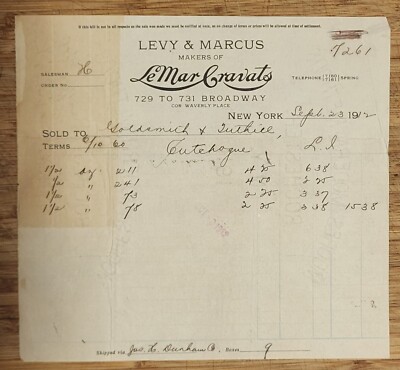 If this bill is not in all respects as the sale was made must be notified at once, as no change of terms or price will be allowed at time of settlement.
LEVY & MARCUS
MAKERS OF
LeMar Cravats
729 TO 731 BROADWAY
COR WAVERLY PLACE
7261
SALESMAN H
ORDER NO.
TELEPHONE SPRING
NEW YORK Sept. 23 1912
SOLD TO Goldsmith & Tuthill,
TERMS 6/10 60 Cutchogue L.I.
1 1/2 dz 211 4 25 6 38
1/2 " 241 4 50 2 25
1 1/2 " 73 2 25 3 37
1 1/2 " 78 2 25 3 38 15 38
Shipped via Jos. H. Dunham Co. 9